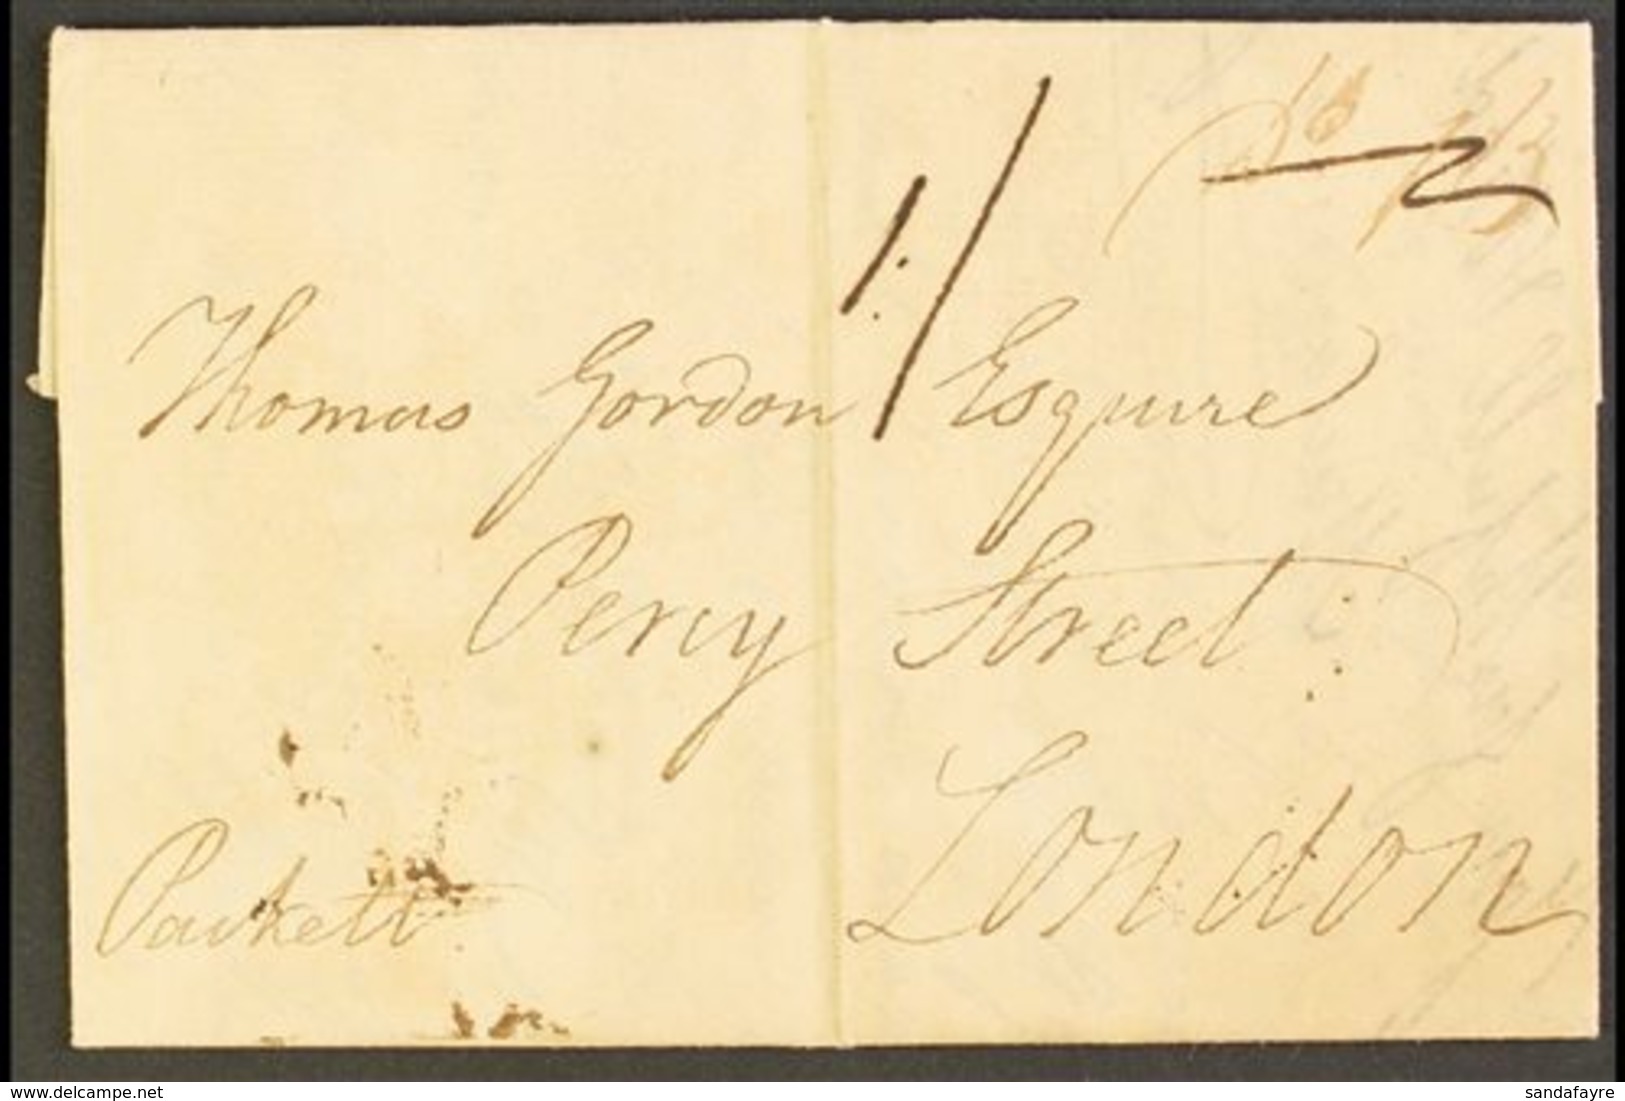 1:/
Thomas Gordon Esquire
Percy Street
London
Packett
delcampe.net
sandafayre